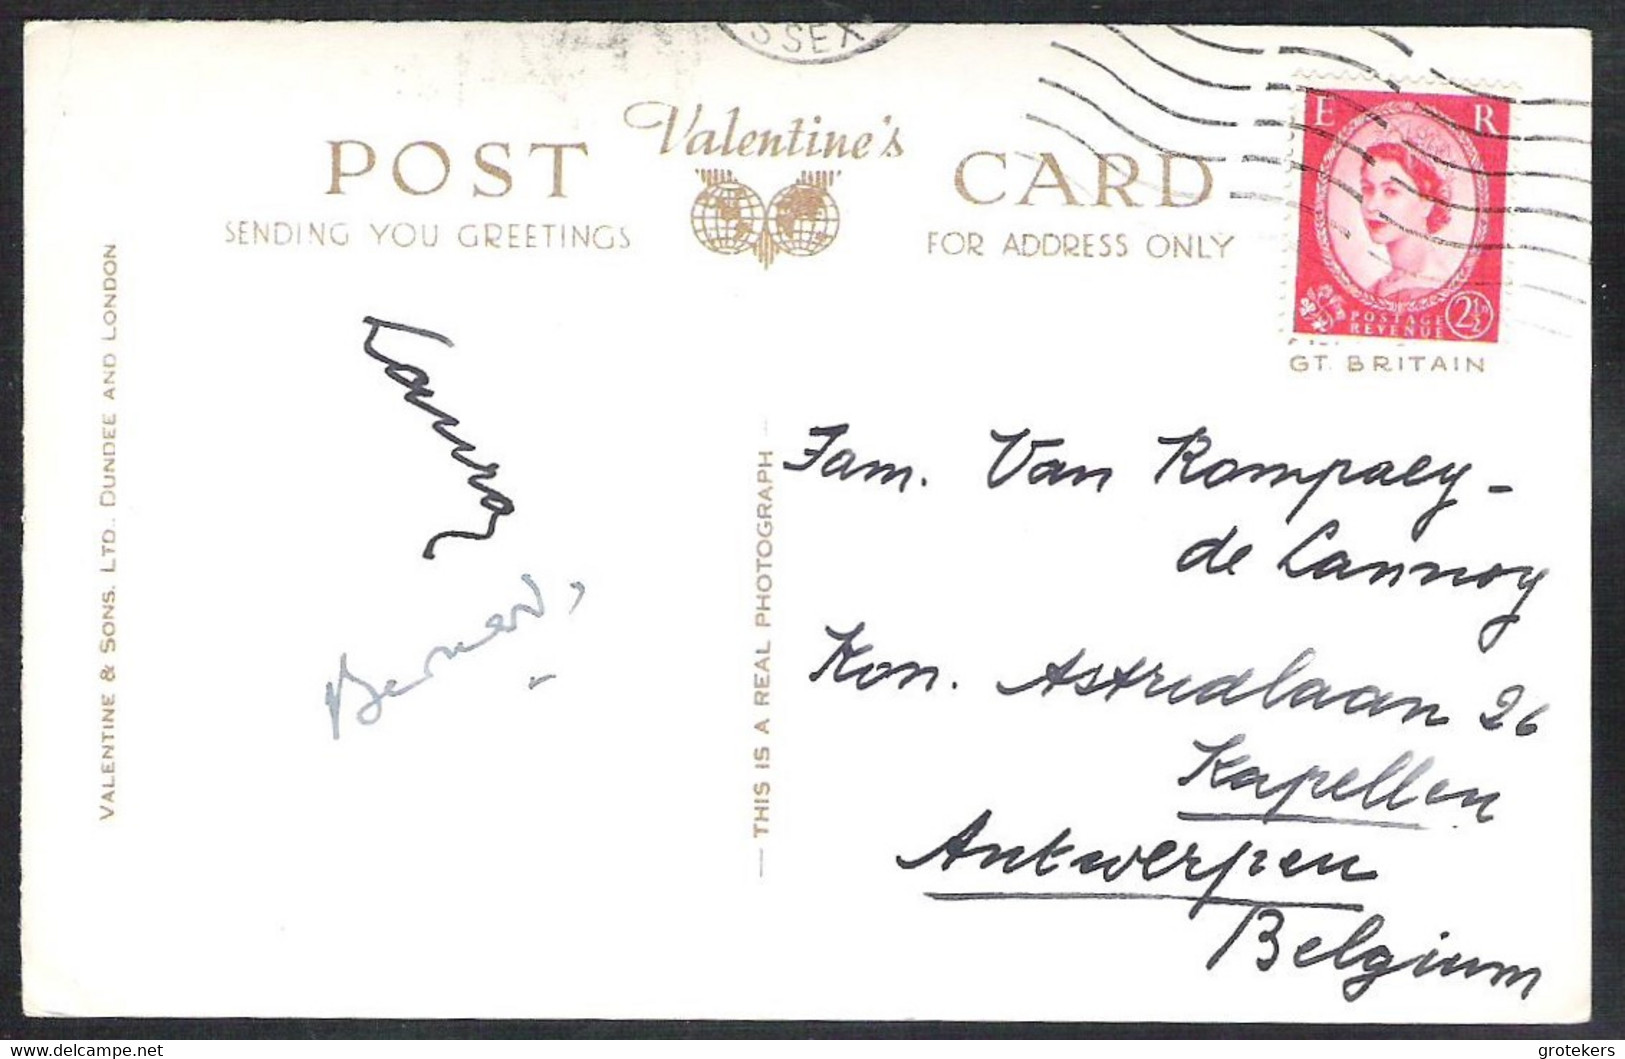 SSEX
Valentine's
POST CARD
SENDING YOU GREETINGS
FOR ADDRESS ONLY
E R
POSTAGE
REVENUE
2½D
GT. BRITAIN
VALENTINE & SONS. LTD., DUNDEE AND LONDON
THIS IS A REAL PHOTOGRAPH
Fam. Van Rompaey -
de Lannoy
Kon. Astridlaan 26
Kapellen
Antwerpen
Belgium
delcampe.net
grotekers